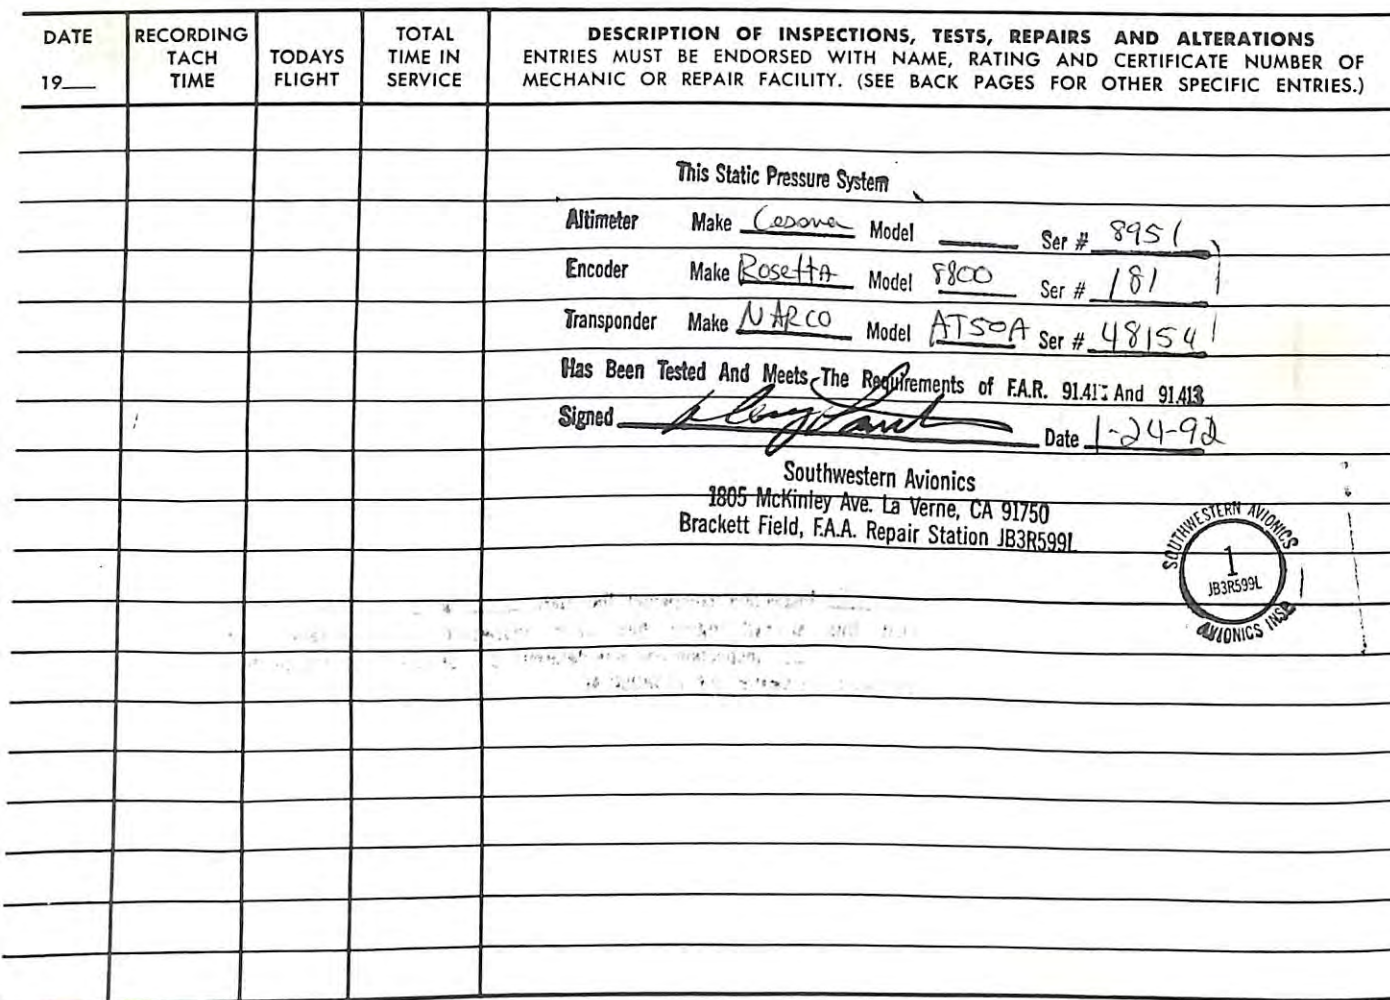 DATE
19___
RECORDING
TACH
TIME
TODAYS
FLIGHT
TOTAL
TIME IN
SERVICE
DESCRIPTION OF INSPECTIONS, TESTS, REPAIRS AND ALTERATIONS
ENTRIES MUST BE ENDORSED WITH NAME, RATING AND CERTIFICATE NUMBER OF
MECHANIC OR REPAIR FACILITY. (SEE BACK PAGES FOR OTHER SPECIFIC ENTRIES.)
This Static Pressure System
Altimeter Make Model ____ Ser # 8951
Encoder Make Rosetta Model 8800 Ser # 181
Transponder Make NARCO Model AT50A Ser # 48154
Has Been Tested And Meets The Requirements of F.A.R. And 91.413
Signed Date 1-24-92
Southwestern Avionics
1805 McKinley Ave. La Verne, CA 91750
Brackett Field, F.A.A. Repair Station JB3R599L
SOUTHWESTERN AVIONICS
1
JB3R599L
AVIONICS INSP